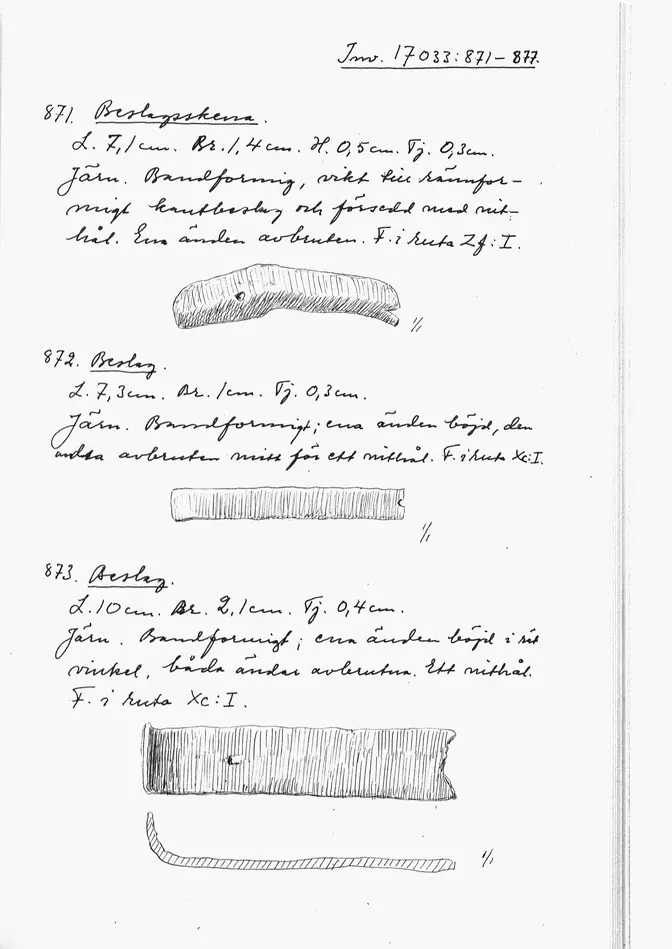 Inv. 17033:871-877.
871. Beslagsskena.
L. 7,1cm. Br. 1,4cm. H. 0,5cm. Tj. 0,3cm.
Järn. Bandformig, vikt till rännfor-
migt kantbeslag och försedd med nit-
hål. Ena änden avbruten. F. i ruta Zf:I.
1/1
872. Beslag.
L. 7,3cm. Br. 1cm. Tj. 0,3cm.
Järn. Bandformigt; ena änden böjd, den
andra avbruten mitt för ett nithål. F. i ruta Xc:I.
1/1
873. Beslag.
L. 10cm. Br. 2,1cm. Tj. 0,4cm.
Järn. Bandformigt; ena änden böjd i rät
vinkel, båda ändar avbrutna. Ett nithål.
F. i ruta Xc:I.
1/1